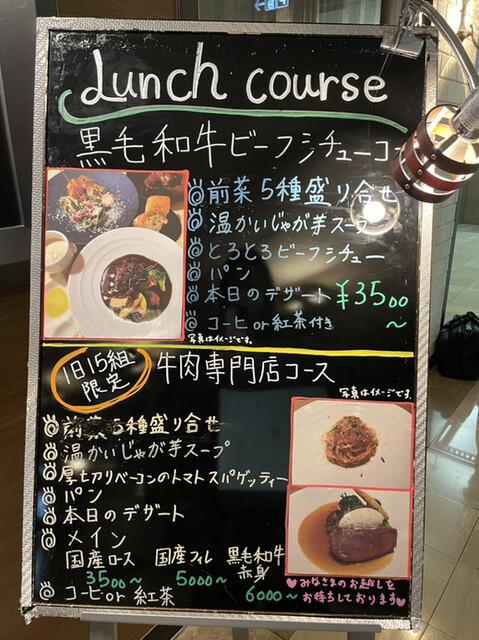 Lunch course
黒毛和牛ビーフシチューコー
前菜5種盛り合せ
温かいじゃが芋スープ
とろとろビーフシチュー
パン
本日のデザート ¥3500～
コーヒor紅茶付き
写真はイメージです。
1日15組限定
牛肉専門店コース
写真はイメージです。
前菜5種盛り合せ
温かいじゃが芋スープ
厚切りベーコンのトマトスパゲッティー
パン
本日のデザート
メイン
国産ロース 国産フィレ 黒毛和牛赤身
3500～ 5000～ 6000～
コーヒor 紅茶
みなさまのお越しを
お待ちしております